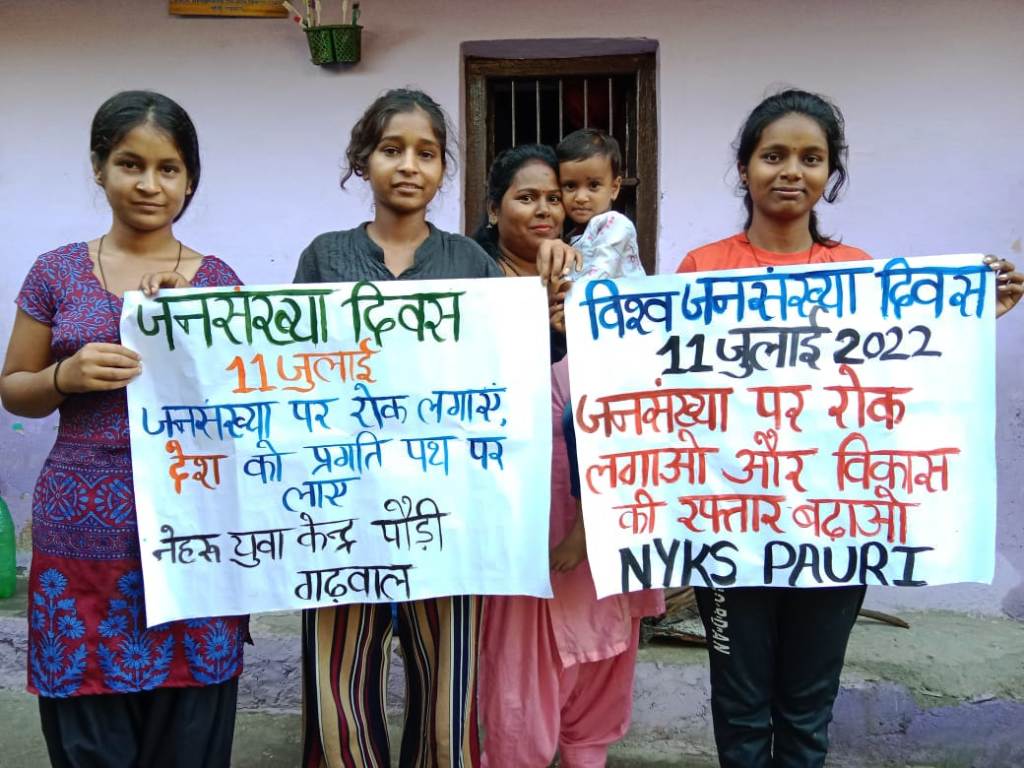 जनसंख्या दिवस
11 जुलाई
जनसंख्या पर रोक लगाएं,
देश को प्रगति पथ पर
लाएं
नेहरू युवा केन्द्र पौड़ी
गढ़वाल
विश्व जनसंख्या दिवस
11 जुलाई 2022
जनसंख्या पर रोक
लगाओ और विकास
की रफ्तार बढ़ाओ
NYKS PAURI